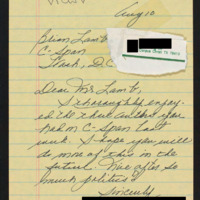 Aug 10
Brian Lamb
C-Span
Wash, D.C.
Dear Mr. Lamb,
I thoroughly enjoy-
ed the that author you
had on C-Span last
week. I hope you will
do more of this in the
future. We after so
much politics!
Sincerely